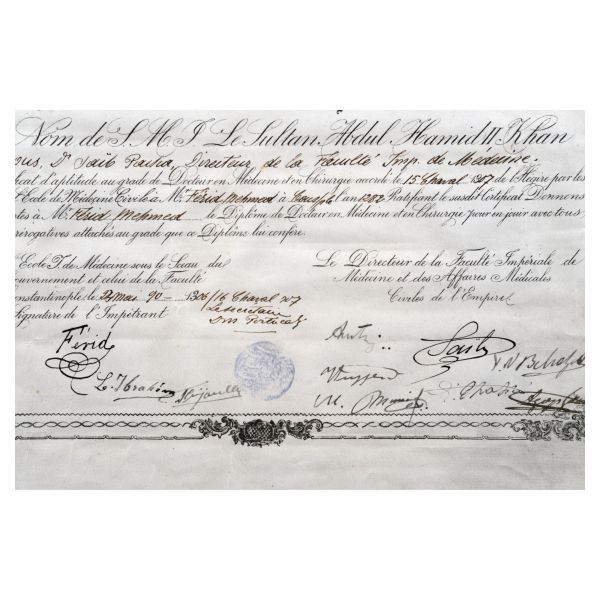 Nom de S. M. I. Le Sultan Abdul Hamid II, Khan
ous, Dr Saïb Pacha, Directeur de la Faculté Imp. de Médecine.
icat d'aptitude au grade de Docteur en Médecine et en Chirurgie accordé le 15 Chaval 1307 de l'Hégire par les
l'Ecole de Médecine Civile à Mr Férid Mehmed à l'an 1282 Ratifiant le susdit Certificat Donnons
tes à Mr Férid Mehmed le Diplôme de Docteur en Médecine et en Chirurgie pour en jouir avec tous
rérogatives attachés au grade que ce Diplôme lui confère.
Ecole I. de Médecine sous le Sceau du
uvernement et celui de la Faculté
onstantinople le 23 Mai 90 — 1306/16 Chaval 307
Signature de l'Impétrant
Le Secrétaire
Le Directeur de la Faculté Impériale de
Médecine et des Affaires Médicales
Civiles de l'Empire
Férid
L. Ibrahim
Saïb